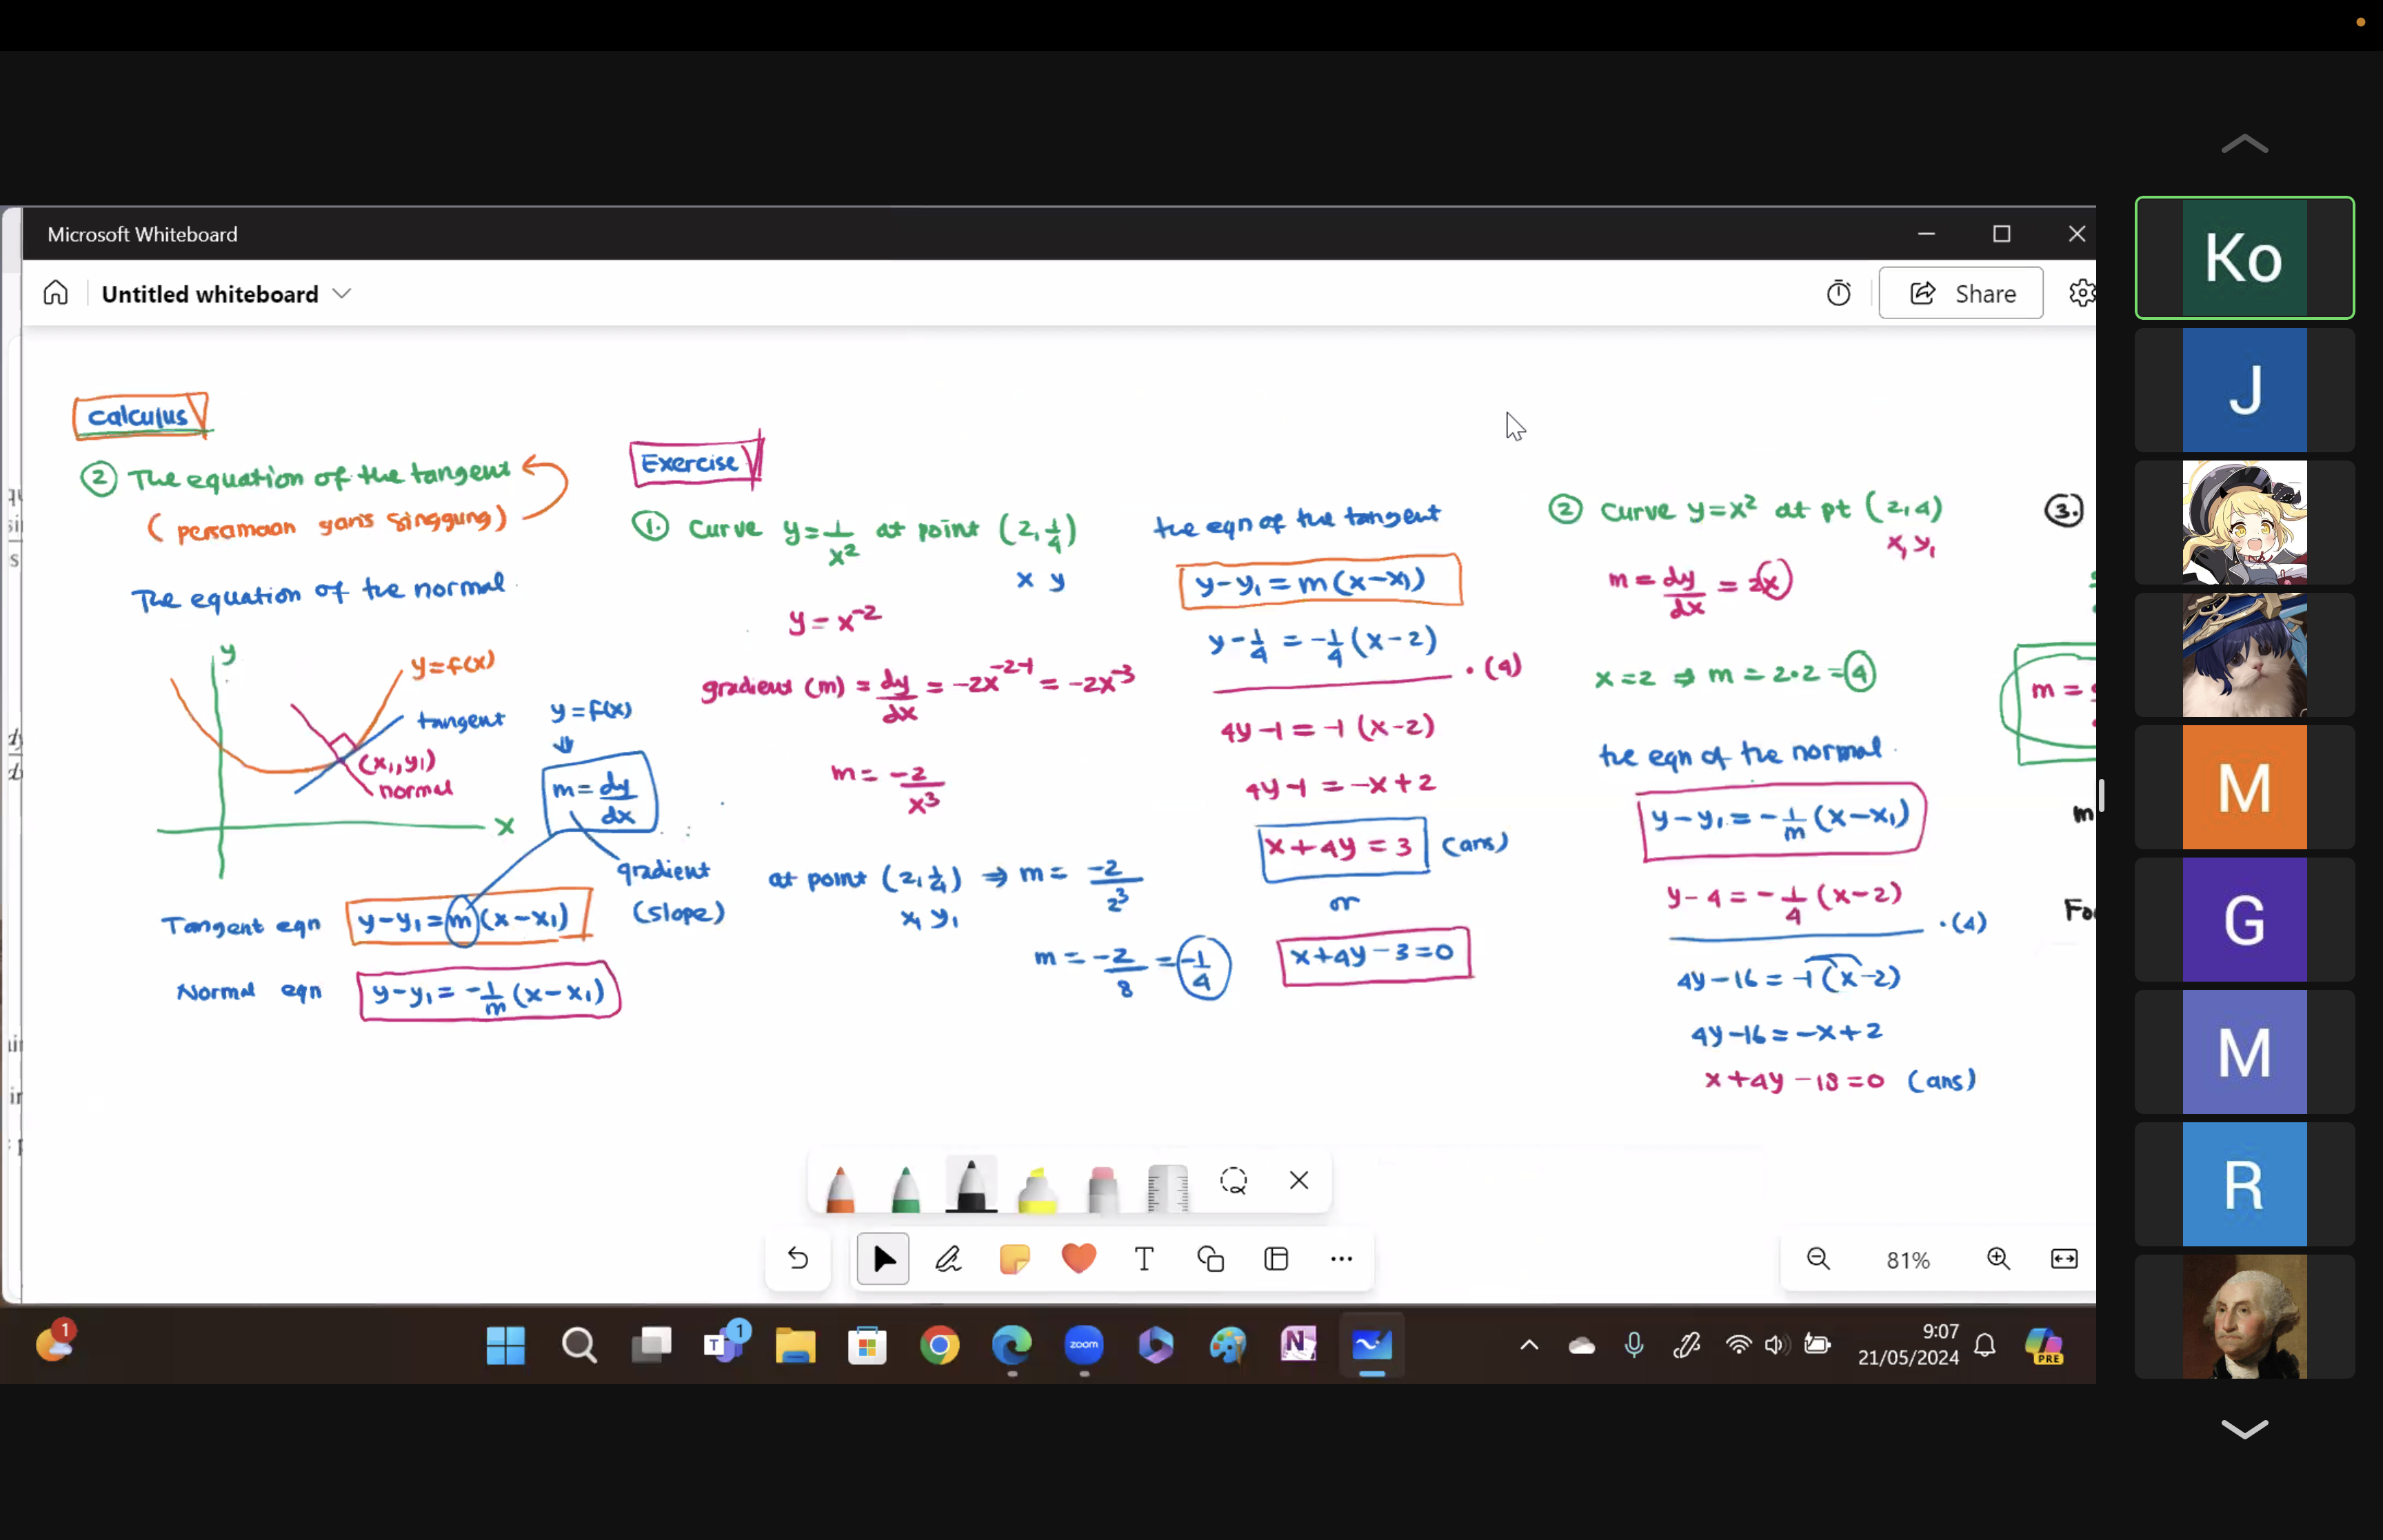 Microsoft Whiteboard
Untitled whiteboard
Share
Calculus
② The equation of the tangent
(persamaan garis singgung)
The equation of the normal
y
y=f(x)
tangent
(x₁,y₁)
normal
x
y=f(x)
m=dy/dx
gradient
(slope)
Tangent eqn y-y₁=m(x-x₁)
Normal eqn y-y₁=-1/m(x-x₁)
Exercise
①. Curve y=1/x² at point (2,1/4)
x y
y=x⁻²
gradient (m) = dy/dx = -2x⁻²⁻¹ = -2x⁻³
m=-2/x³
at point (2,1/4) ⇒ m= -2/2³
x₁ y₁
m=-2/8=-1/4
the eqn of the tangent
y-y₁=m(x-x₁)
y-1/4=-1/4(x-2)
·(4)
4y-1=-1(x-2)
4y-1=-x+2
x+4y=3 (ans)
or
x+4y-3=0
② Curve y=x² at pt (2,4)
x₁ y₁
m=dy/dx=2x
x=2 ⇒ m=2·2=4
the eqn of the normal
y-y₁=-1/m(x-x₁)
y-4=-1/4(x-2)
·(4)
4y-16=-1(x-2)
4y-16=-x+2
x+4y-18=0 (ans)
③.
m=
m
Fo
81%
1
T
1
zoom
N
9:07
21/05/2024
PRE
Ko
J
M
G
M
R